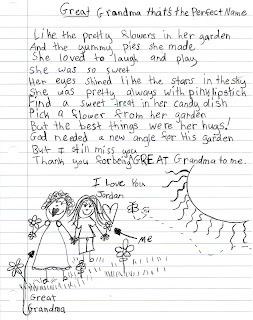 Great Grandma that's the Perfect Name
Like the pretty flowers in her garden
And the yummy pies she made
She loved to laugh and play
She was so sweet
Her eyes shined like the stars in the sky
She was pretty always with pink lipstick
Find a sweet treat in her candy dish
Pick a flower from her garden
But the best things were her hugs!
God needed a new angle for his garden
But I still miss you
Thank you for being GREAT Grandma to me.
I Love You
Jordan
me
Great
Grandma